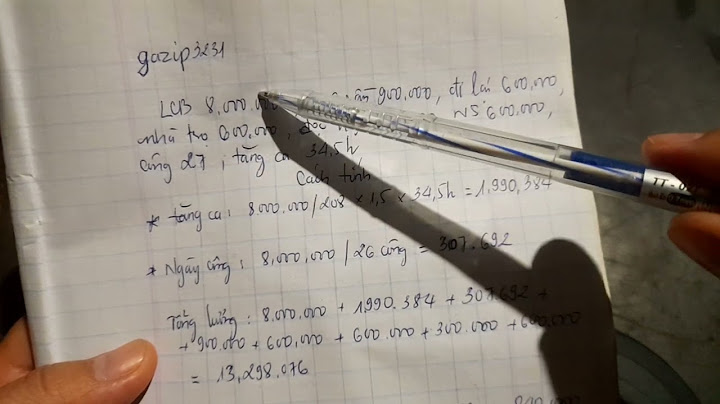 gazip3231
LCB 8,000.000 ăn 900.000, đi lại 600,000,
nhà trọ 600,000, độc NS: 600,000,
công 27, tăng ca 34,5h
Cách tính
* tăng ca: 8000.000/208 x 1,5 x 34,5h = 1,990,384
* Ngày công: 8,000,000 / 26 công = 307.692
Tổng lương: 8.000.000 + 1990.384 + 307.692 +
+ 900.000 + 600,000 + 600.000 + 300.000 + 600.000
= 13,298.076
TT-0